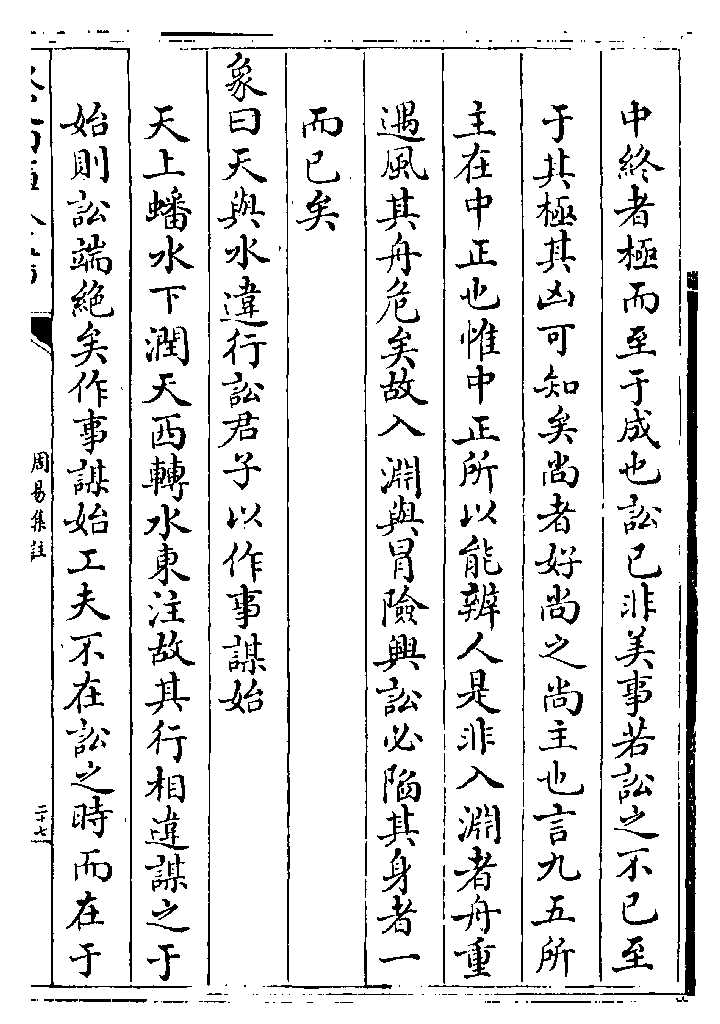 中終者極而至于成也訟已非美事若訟之不已至
于其極其凶可知矣尚者好尚之尚主也言九五所
主在中正也惟中正所以能辨人是非入淵者舟重
遇風其舟危矣故入淵與冒險興訟必陷其身者一
而已矣
象曰天與水違行訟君子以作事謀始
天上蟠水下潤天西轉水東注故其行相違謀之于
始則訟端絶矣作事謀始工夫不在訟之時而在于
周易集註
二十七